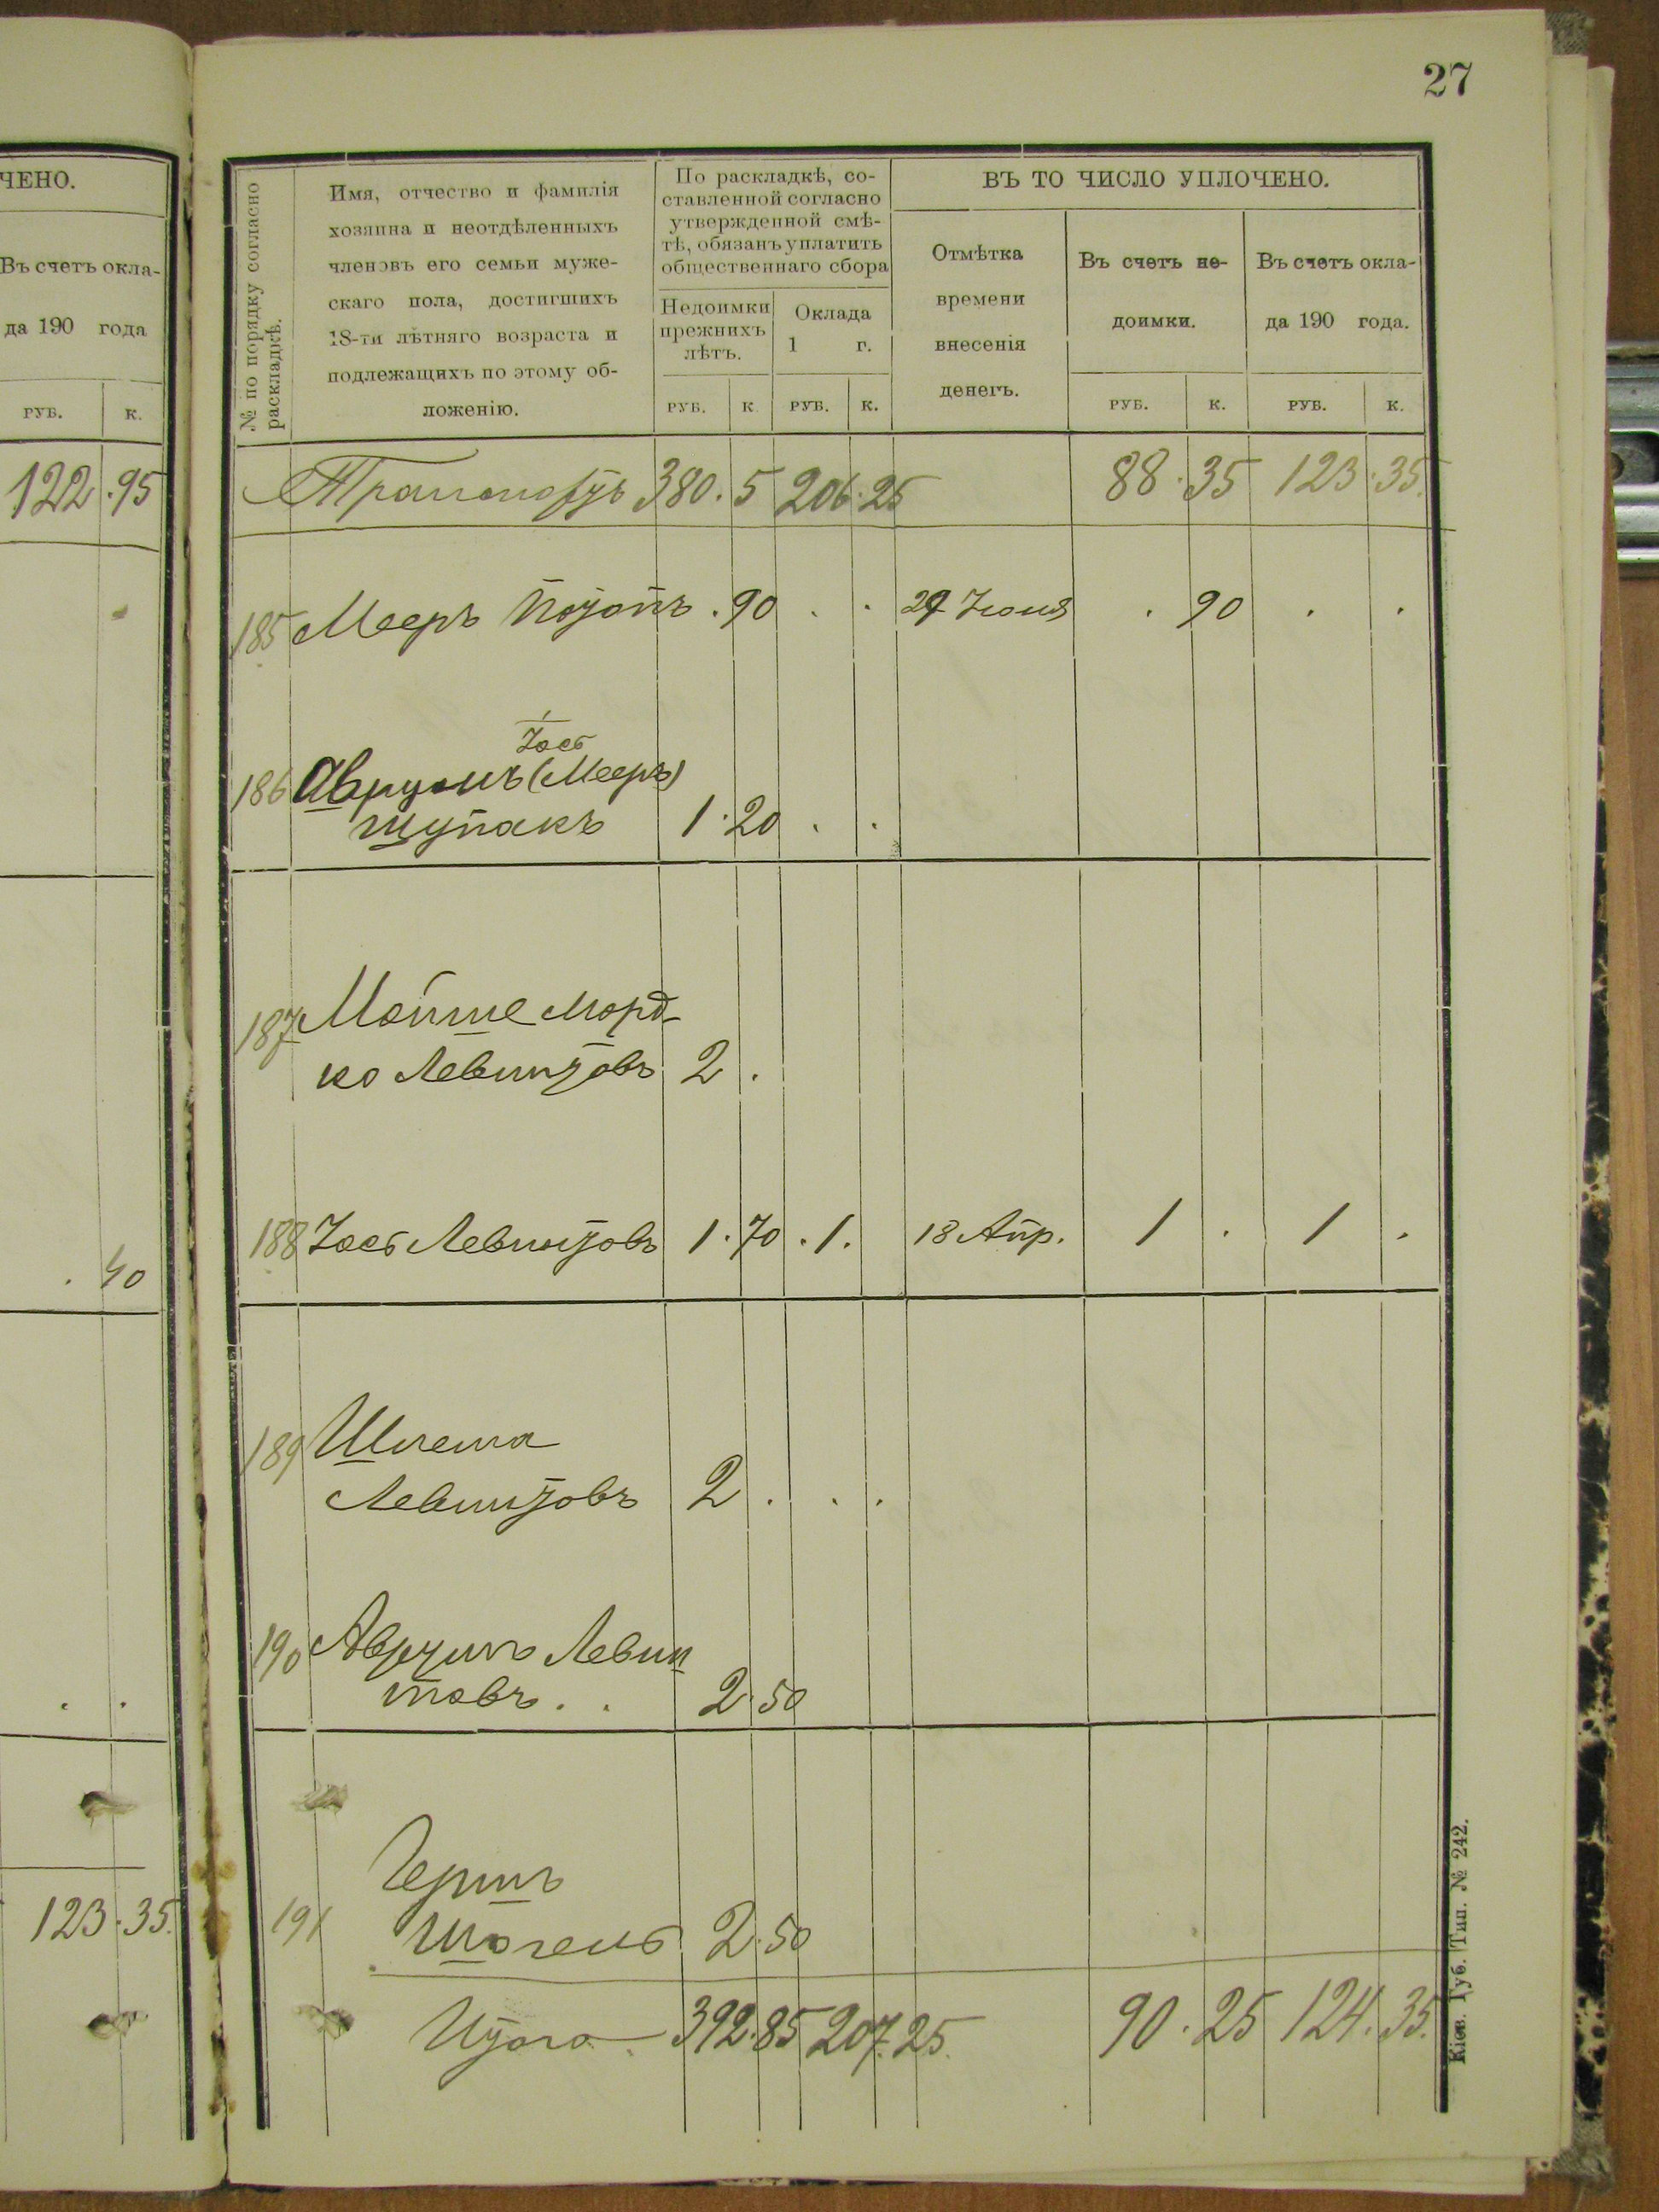 27
ЧЕНО.
Въ счетъ окла-
да 190 года
РУБ. К.
122 . 95
. 40
. .
123 . 35.
№ по порядку согласно
раскладкѣ.
Имя, отчество и фамилія
хозяина и неотдѣленныхъ
членовъ его семьи муже-
скаго пола, достигшихъ
18-ти лѣтняго возраста и
подлежащихъ по этому об-
ложенію.
По раскладкѣ, со-
ставленной согласно
утвержденной смѣ-
тѣ, обязанъ уплатить
общественнаго сбора
Недоимки
прежнихъ
лѣтъ.
Оклада
1 г.
РУБ. К. РУБ. К.
ВЪ ТО ЧИСЛО УПЛОЧЕНО.
Отмѣтка
времени
внесенія
денегъ.
Въ счетъ не-
доимки.
РУБ. К.
Въ счетъ окла-
да 190 года.
РУБ. К.
Транспортъ 380 . 5 206 . 25 88 . 35 123 . 35.
185 Мееръ . 90 . . 29 Іюня . 90 . .
Іось
186 Аврумъ (Мееръ)
Щупакъ 1 . 20 . .
187 Мойше Морд-
ко Левинтовъ 2 .
188 Іось Левинтовъ 1 . 70 . 1 . 18 Апр. 1 . 1 .
189 Шлема
Левинтовъ 2 . . .
190 Аврумъ Левин
товъ . . 2 . 50
Гершъ
191 Штогель 2 . 50
Итого 392 . 85 207 . 25. 90 . 25 124 . 35.
Кіев. Губ. Тип. № 242.